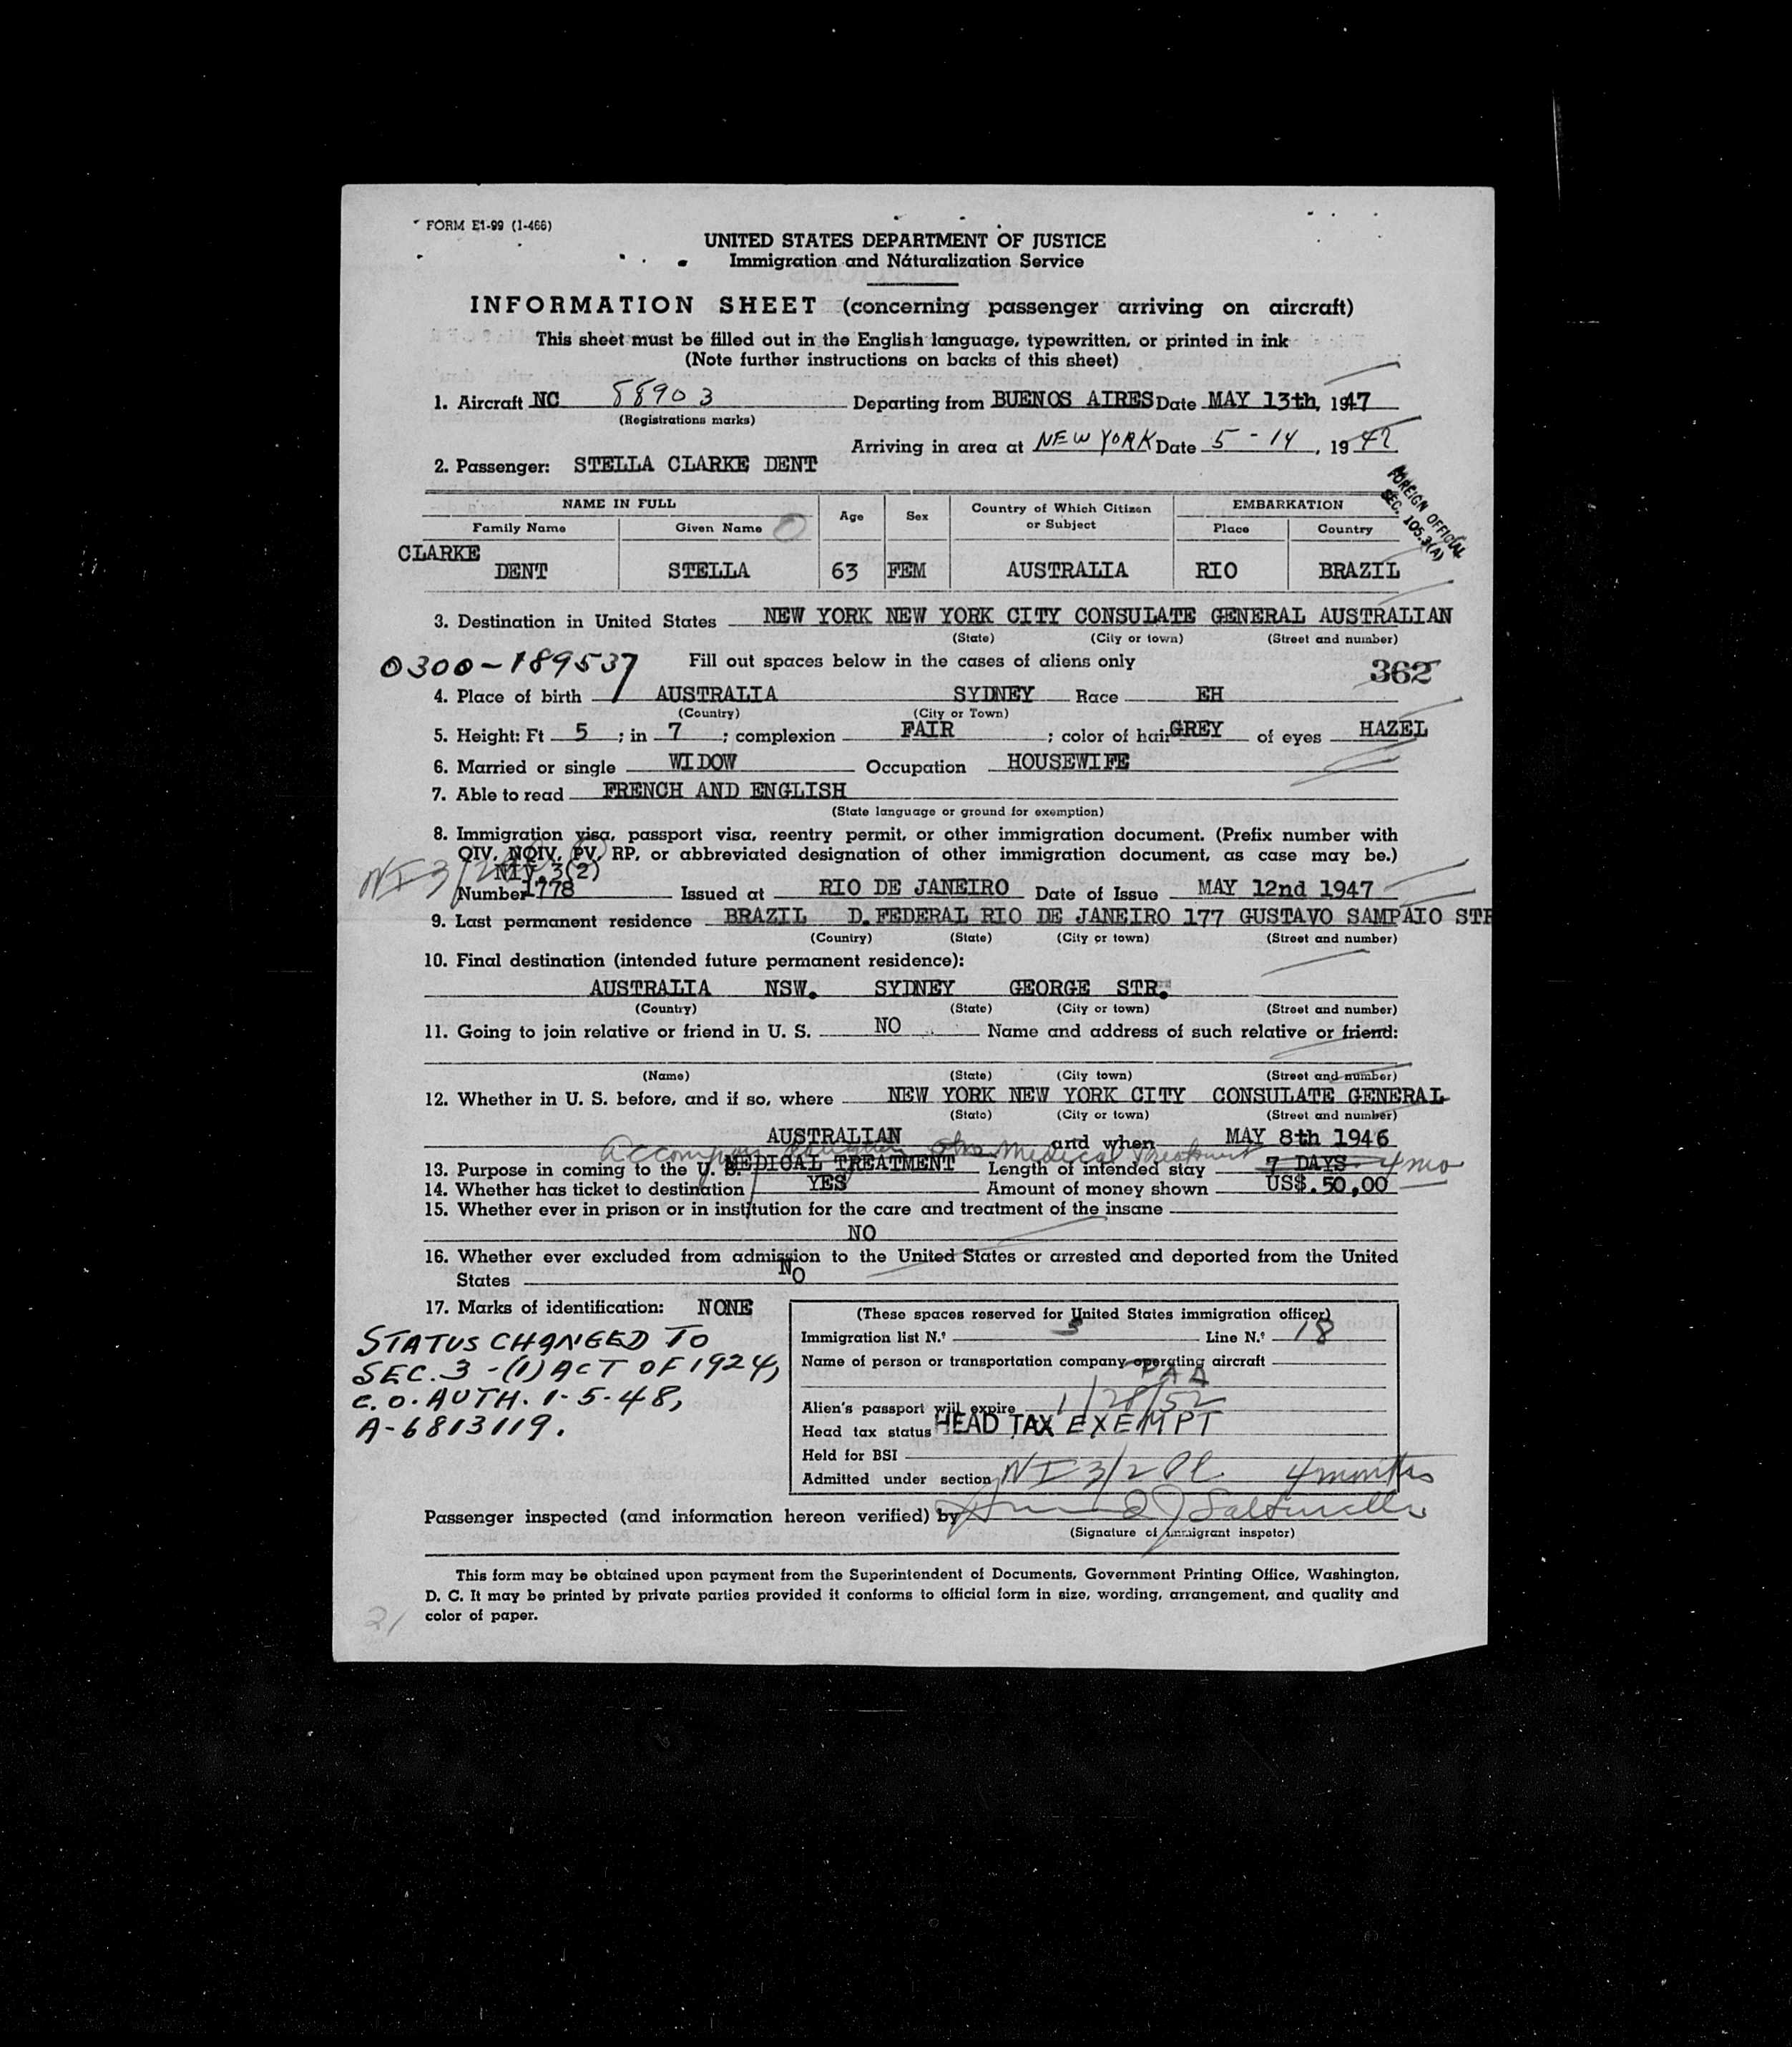 FORM E1-99 (I-466)
UNITED STATES DEPARTMENT OF JUSTICE
Immigration and Naturalization Service
INFORMATION SHEET (concerning passenger arriving on aircraft)
This sheet must be filled out in the English language, typewritten, or printed in ink
(Note further instructions on backs of this sheet)
1. Aircraft NC 88903 Departing from BUENOS AIRES Date MAY 13th, 1947
(Registrations marks)
Arriving in area at NEW YORK Date 5-14, 1947
2. Passenger: STELLA CLARKE DENT
FOREIGN OFFICIAL
SEC. 105.3(A)
NAME IN FULL Age Sex Country of Which Citizen or Subject EMBARKATION
Family Name Given Name Place Country
CLARKE
DENT STELLA 63 FEM AUSTRALIA RIO BRAZIL
3. Destination in United States NEW YORK NEW YORK CITY CONSULATE GENERAL AUSTRALIAN
(State) (City or town) (Street and number)
0300-189537 Fill out spaces below in the cases of aliens only 362
4. Place of birth AUSTRALIA SYDNEY Race EH
(Country) (City or Town)
5. Height: Ft 5 ; in 7 ; complexion FAIR ; color of hair GREY of eyes HAZEL
6. Married or single WIDOW Occupation HOUSEWIFE
7. Able to read FRENCH AND ENGLISH
(State language or ground for exemption)
8. Immigration visa, passport visa, reentry permit, or other immigration document. (Prefix number with
QIV, NQIV, PV, RP, or abbreviated designation of other immigration document, as case may be.)
NI 3/2 NIV.3(2)
Number 1778 Issued at RIO DE JANEIRO Date of Issue MAY 12nd 1947
9. Last permanent residence BRAZIL D.FEDERAL RIO DE JANEIRO 177 GUSTAVO SAMPAIO STR
(Country) (State) (City or town) (Street and number)
10. Final destination (intended future permanent residence):
AUSTRALIA NSW. SYDNEY GEORGE STR.
(Country) (State) (City or town) (Street and number)
11. Going to join relative or friend in U. S. NO Name and address of such relative or friend:
(Name) (State) (City town) (Street and number)
12. Whether in U. S. before, and if so, where NEW YORK NEW YORK CITY CONSULATE GENERAL
(Stato) (City or town) (Street and number)
AUSTRALIAN and when MAY 8th 1946
Accompany daughter Medical Treatment
13. Purpose in coming to the U. S. MEDICAL TREATMENT Length of intended stay 7 DAYS 4 mo
14. Whether has ticket to destination YES Amount of money shown US$.50,00
15. Whether ever in prison or in institution for the care and treatment of the insane
NO
16. Whether ever excluded from admission to the United States or arrested and deported from the United
States NO
17. Marks of identification: NONE
STATUS CHANGED TO
SEC. 3-(1) ACT OF 1924,
C.O. AUTH. 1-5-48,
A-6813119.
(These spaces reserved for United States immigration officer)
Immigration list N.º 3 Line N.º 18
Name of person or transportation company operating aircraft
PAA
Alien's passport will expire 1/28/52
Head tax status HEAD TAX EXEMPT
Held for BSI
Admitted under section NI 3/2 Pl. 4 months
Passenger inspected (and information hereon verified) by
(Signature of immigrant inspetor)
This form may be obtained upon payment from the Superintendent of Documents, Government Printing Office, Washington,
D. C. It may be printed by private parties provided it conforms to official form in size, wording, arrangement, and quality and
color of paper.
21